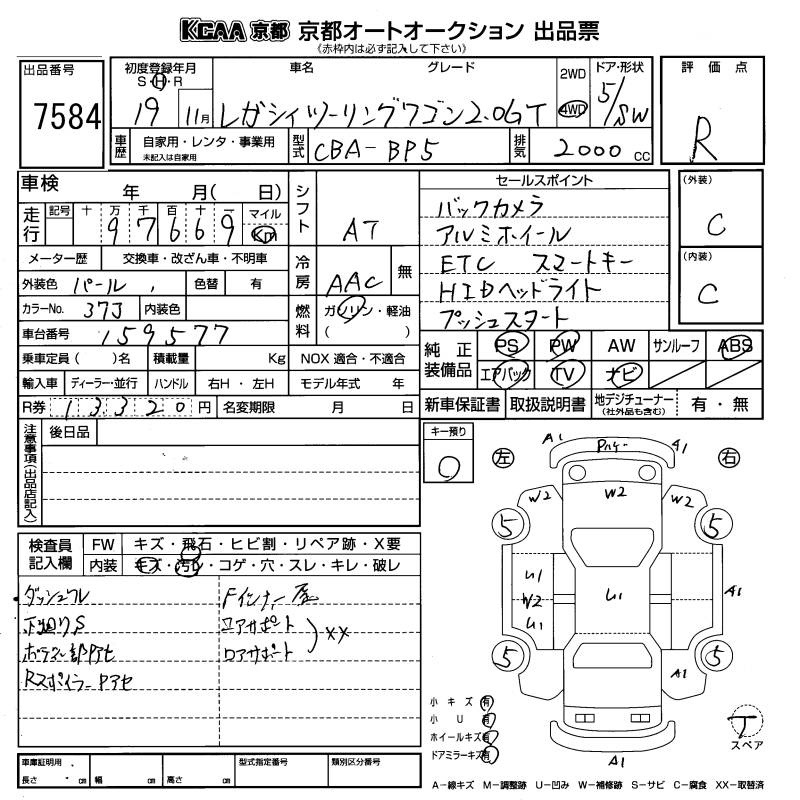 KCAA 京都 京都オートオークション 出品票
(赤枠内は必ず記入して下さい)
出品番号
7584
初度登録年月
S・H・R
19
11月
車名
グレード
レガシィツーリングワゴン2.0GT
2WD
4WD
ドア・形状
5/SW
評価点
R
車歴
自家用・レンタ・事業用
未記入は自家用
型式
CBA-BP5
排気
2000 cc
車検 年 月( 日)
走行
記号 十 万 千 百 十 一
97669
マイル
Km
シフト
AT
メーター歴 交換車・改ざん車・不明車
冷房
AAC
無
外装色 パール
色替 有
カラーNo. 37J
内装色
燃料
ガソリン・軽油
( )
車台番号 159577
乗車定員( )名 積載量 Kg NOX適合・不適合
輸入車 ディーラー・並行 ハンドル 右H・左H モデル年式 年
R券 13320円 名変期限 月 日
セールスポイント
バックカメラ
アルミホイール
ETC スマートキー
HIDヘッドライト
プッシュスタート
(外装)
C
(内装)
C
純正装備品
PS PW AW サンルーフ ABS
エアバック TV ナビ
新車保証書 取扱説明書 地デジチューナー
(社外品も含む)
有・無
注意事項(出品店記入)
後日品
キー預り
0
検査員記入欄
FW キズ・飛石・ヒビ割・リペア跡・X要
内装 キズ・汚れ・コゲ・穴・スレ・キレ・破レ
ダッシュワレ
下廻りS
Rスポイラー Pアセ
コアサポート
ロアサポート
XX
左
右
A1
A1
W2
W2
W2
5
5
5
5
U1
W2
U1
U1
A1
A1
A1
小キズ 有
小U 有
ホイールキズ 有
ドアミラーキズ 有
T
スペア
A-線キズ M-調整跡 U-凹み W-補修跡 S-サビ C-腐食 XX-取替済
車庫証明用
長さ cm 幅 cm 高さ cm
型式指定番号
類別区分番号